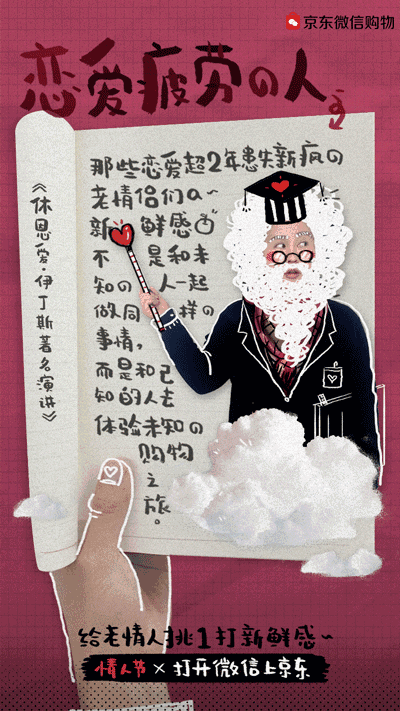 京东微信购物
恋爱疲劳の人
那些恋爱超2年患失新疯の
老情侣们a~
新 鲜感
不 是和未
知の 人一起
做同 样の
事情，
而是和已
知的人去
体验未知の
购物
之
旅。
《休恩爱·伊丁斯著名演讲》
给老情人挑1打新鲜感~
情人节×打开微信上京东